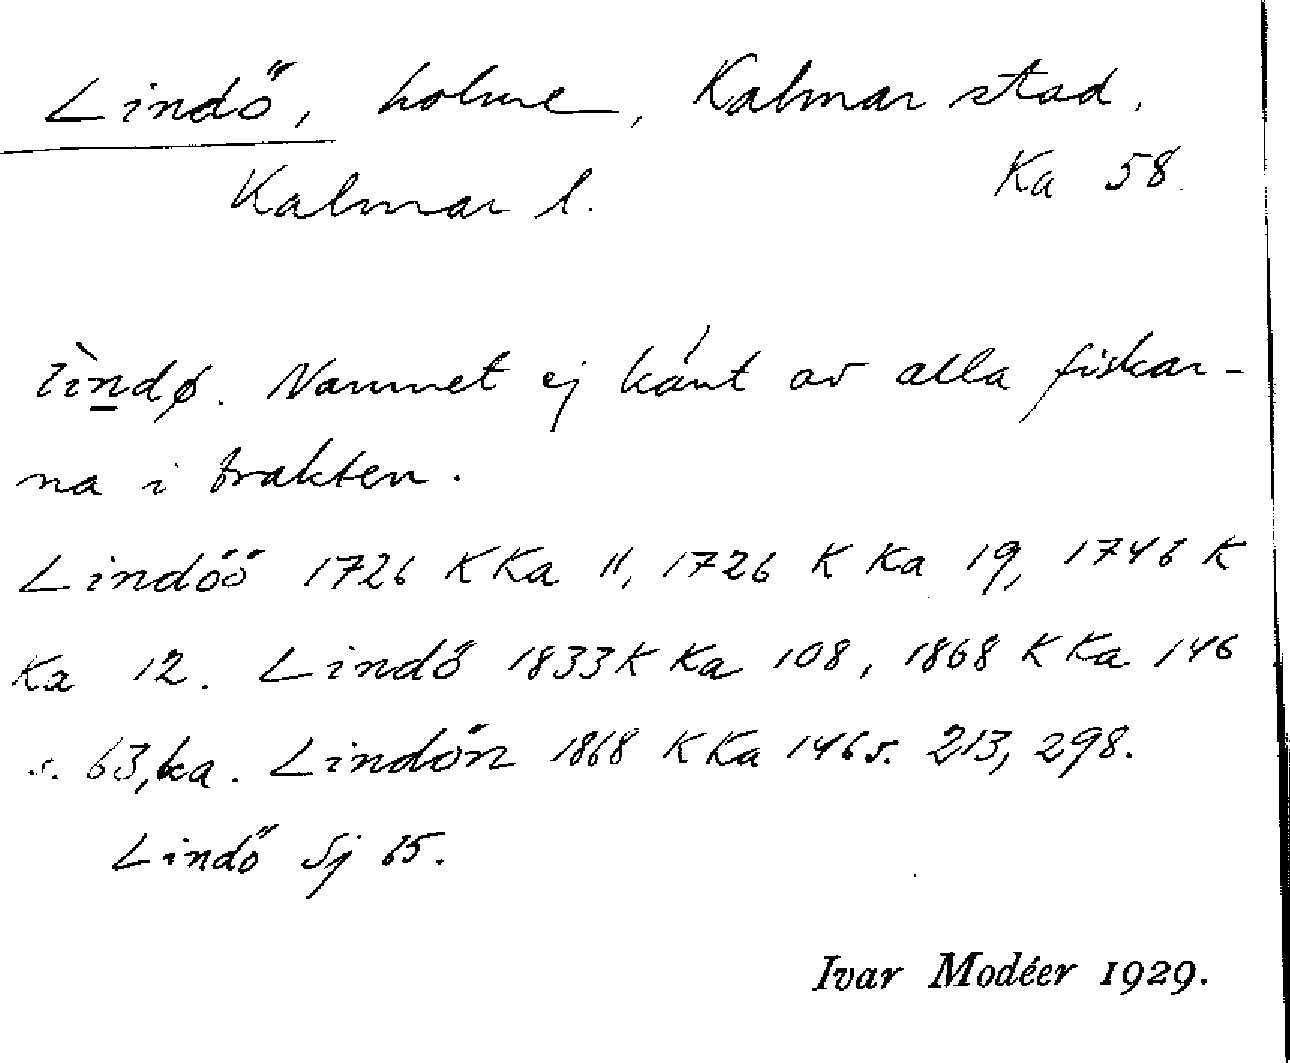 Lindö, holme, Kalmar stad.
Kalmar l. Ka 58.
lìndø. Namnet ej känt av alla fiskar-
na i trakten.
Lindöö 1726 K Ka 11, 1726 K Ka 19, 1746 K
Ka 12. Lindö 1833 K Ka 108, 1868 K Ka 146
s. 63, ka. Lindön 1868 K Ka 146 s. 213, 298.
Lindö Sj 65.
Ivar Modéer 1929.